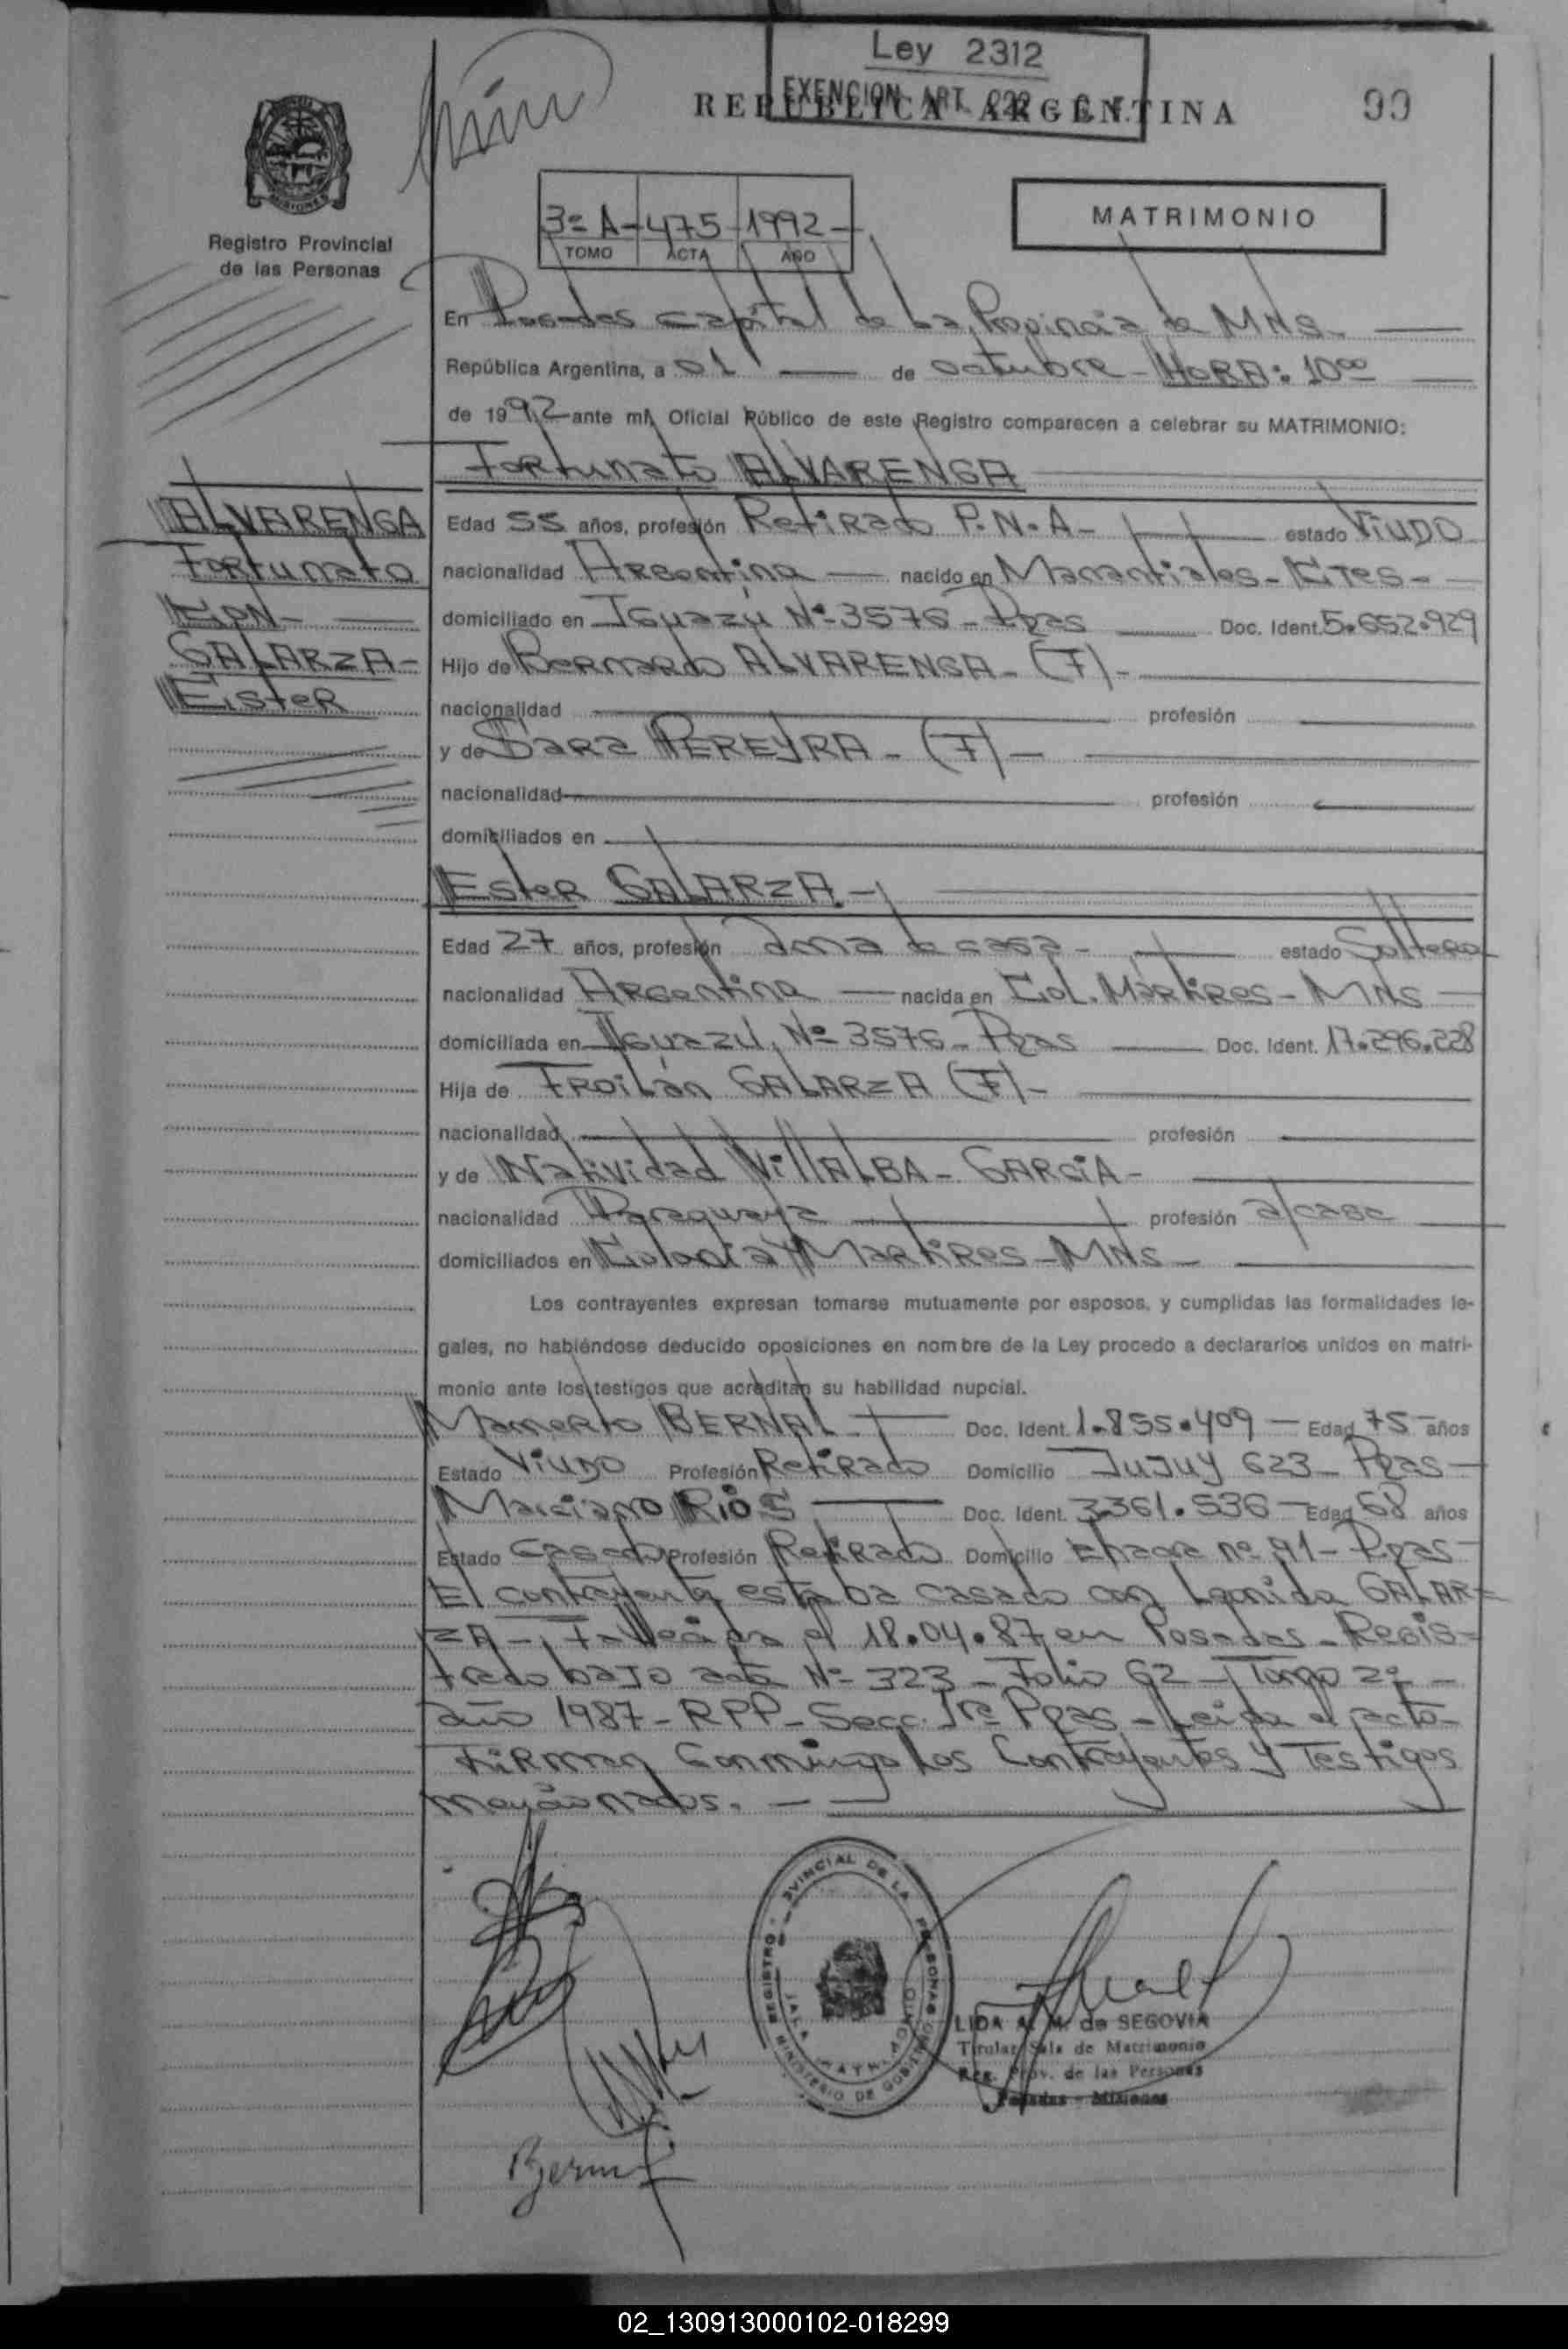 Ley 2312
EXENCION ART.
REPUBLICA ARGENTINA
99
Registro Provincial
de las Personas
3º A - 475 - 1992 -
TOMO ACTA AÑO
MATRIMONIO
En Posadas capital de La Provincia de MNS.
República Argentina, a 01 de octubre - HORA: 10ºº
de 1992 ante mí, Oficial Público de este Registro comparecen a celebrar su MATRIMONIO:
Fortunato ALVARENGA
ALVARENGA
Fortunato
CON -
GALARZA -
Ester
Edad 55 años, profesión Retirado P.N.A - estado Viudo
nacionalidad Argentina nacido en Manantiales - Ctes -
domiciliado en Iguazú Nº 3576 - Pdas Doc. Ident. 5.652.929
Hijo de Bernardo ALVARENGA - (F) -
nacionalidad profesión
y de Sara PEREYRA - (F) -
nacionalidad profesión
domiciliados en
Ester GALARZA. -
Edad 27 años, profesión ama de casa - estado Soltera
nacionalidad Argentina nacida en Col. Mártires - MNS
domiciliada en Iguazú Nº 3576 - Pdas Doc. Ident. 17.296.228
Hija de FROILán GALARZA (F) -
nacionalidad profesión
y de Natividad VillALBA - GARCIA -
nacionalidad Paraguaya profesión a/casa
domiciliados en Colonia Martires - MNS -
Los contrayentes expresan tomarse mutuamente por esposos, y cumplidas las formalidades le-
gales, no habiéndose deducido oposiciones en nombre de la Ley procedo a declararlos unidos en matri-
monio ante los testigos que acreditan su habilidad nupcial.
Mamerto BERNAL - Doc. Ident. 1.855.409 - Edad 75 años
Estado Viudo Profesión Retirado Domicilio Jujuy 623 - Pdas -
Marciano RIOS Doc. Ident. 3361.536 - Edad 68 años
Estado Casado Profesión Retirado Domicilio nº 91 - Pdas -
El contrayente estaba casado con Leonida GALAR=
ZA -, Fallecida el 18.04.87 en Posadas - Regis-
trado bajo acta Nº 323 - Folio 62 - Tomo 2º -
año 1987 - RPP - Secc. 1ra Pdas - Leída el acta
Firman Conmingo los Contrayentes y Testigos
mencionados. -
REGISTRO PROVINCIAL DE LA PERSONAS
SALA MATRIMONIO
MINISTERIO DE GOBIERNO
LIDA A. M. de SEGOVIA
Titular Sala de Matrimonio
Reg. Prov. de las Personas
Posadas - Misiones
02_130913000102-018299